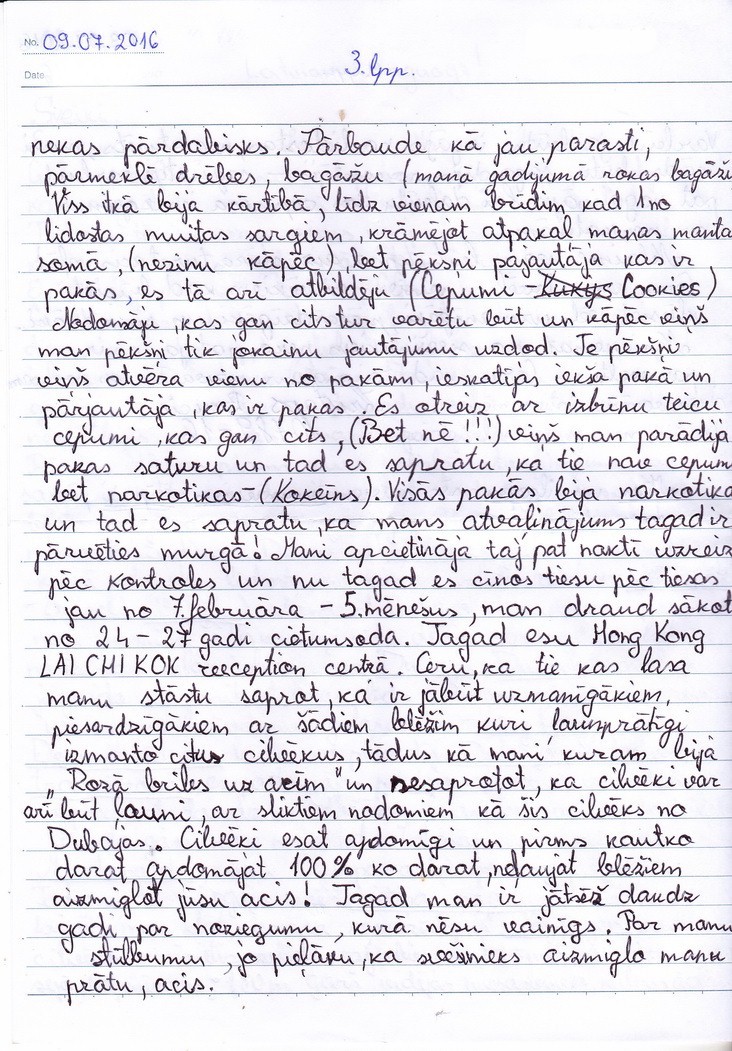 No. 09.07.2016
Date
3.lpp.
nekas pārdabisks. Pārbaude kā jau parasti,
pārmeklē drēbes, bagāžu (manā gadijumā rokas bagāži
Viss itkā bija kārtībā, līdz vienam brīdim kad 1 no
lidostas muitas sargiem, krāmējot atpakaļ manas manta
somā, (nezinu kāpēc), bet pēkšņi pajautāja kas ir
pakās, es tā arī atbildēju (Cepumi - Kukys Cookies)
Nodomāju, kas gan cits tur varētu būt un kāpēc viņš
man pēkšņi tik jokainu jautājumu uzdod. Te pēkšņi
viņš atvēra vienu no pakām, ieskatijās iekša pakā un
pārjautāja, kas ir pakas. Es otreiz ar izbrīnu teicu
cepumi, kas gan cits, (Bet nē !!!) viņš man parādija
pakas saturu un tad es sapratu, ka tie nav cepum
bet narkotikas - (Kokeīns). Visās pakās bija narkotika
un tad es sapratu, ka mans atvaļinājums tagad ir
pārvēties murgā! Mani apcietināja taj pat naktī uzreiz
pēc kontroles un nu tagad es cīnos tiesu pēc tiesas
jau no 7.februāra - 5.mēnešus, man draud sākot
no 24 - 27 gadi cietumsoda. Tagad esu Hong Kong
LAI CHI KOK reeception centrā. Ceru, ka tie kas lasa
manu stāstu saprot, ka ir jābūt uzmanīgākiem,
piesardzīgākiem ar šādiem blēžim kuri ļaunprātīgi
izmanto citus cilvēkus, tādus kā mani, kuram bijā
„Rozā briles uz acīm" un nesaprotot, ka cilvēki var
arī būt ļauni, ar sliktiem nodomiem kā šis cilvēks no
Dubajas. Cilvēki esat apdomīgi un pirms kautko
darat apdomājat 100% ko darat, neļaujat blēžiem
aizmiglot jūsu acis! Tagad man ir jātsēž daudz
gadi par noziegumu, kurā nēsu vainīgs. Par manu
stūlbumu, jo pieļāvu, ka svešinieks aizmiglo manu
prātu, acis.